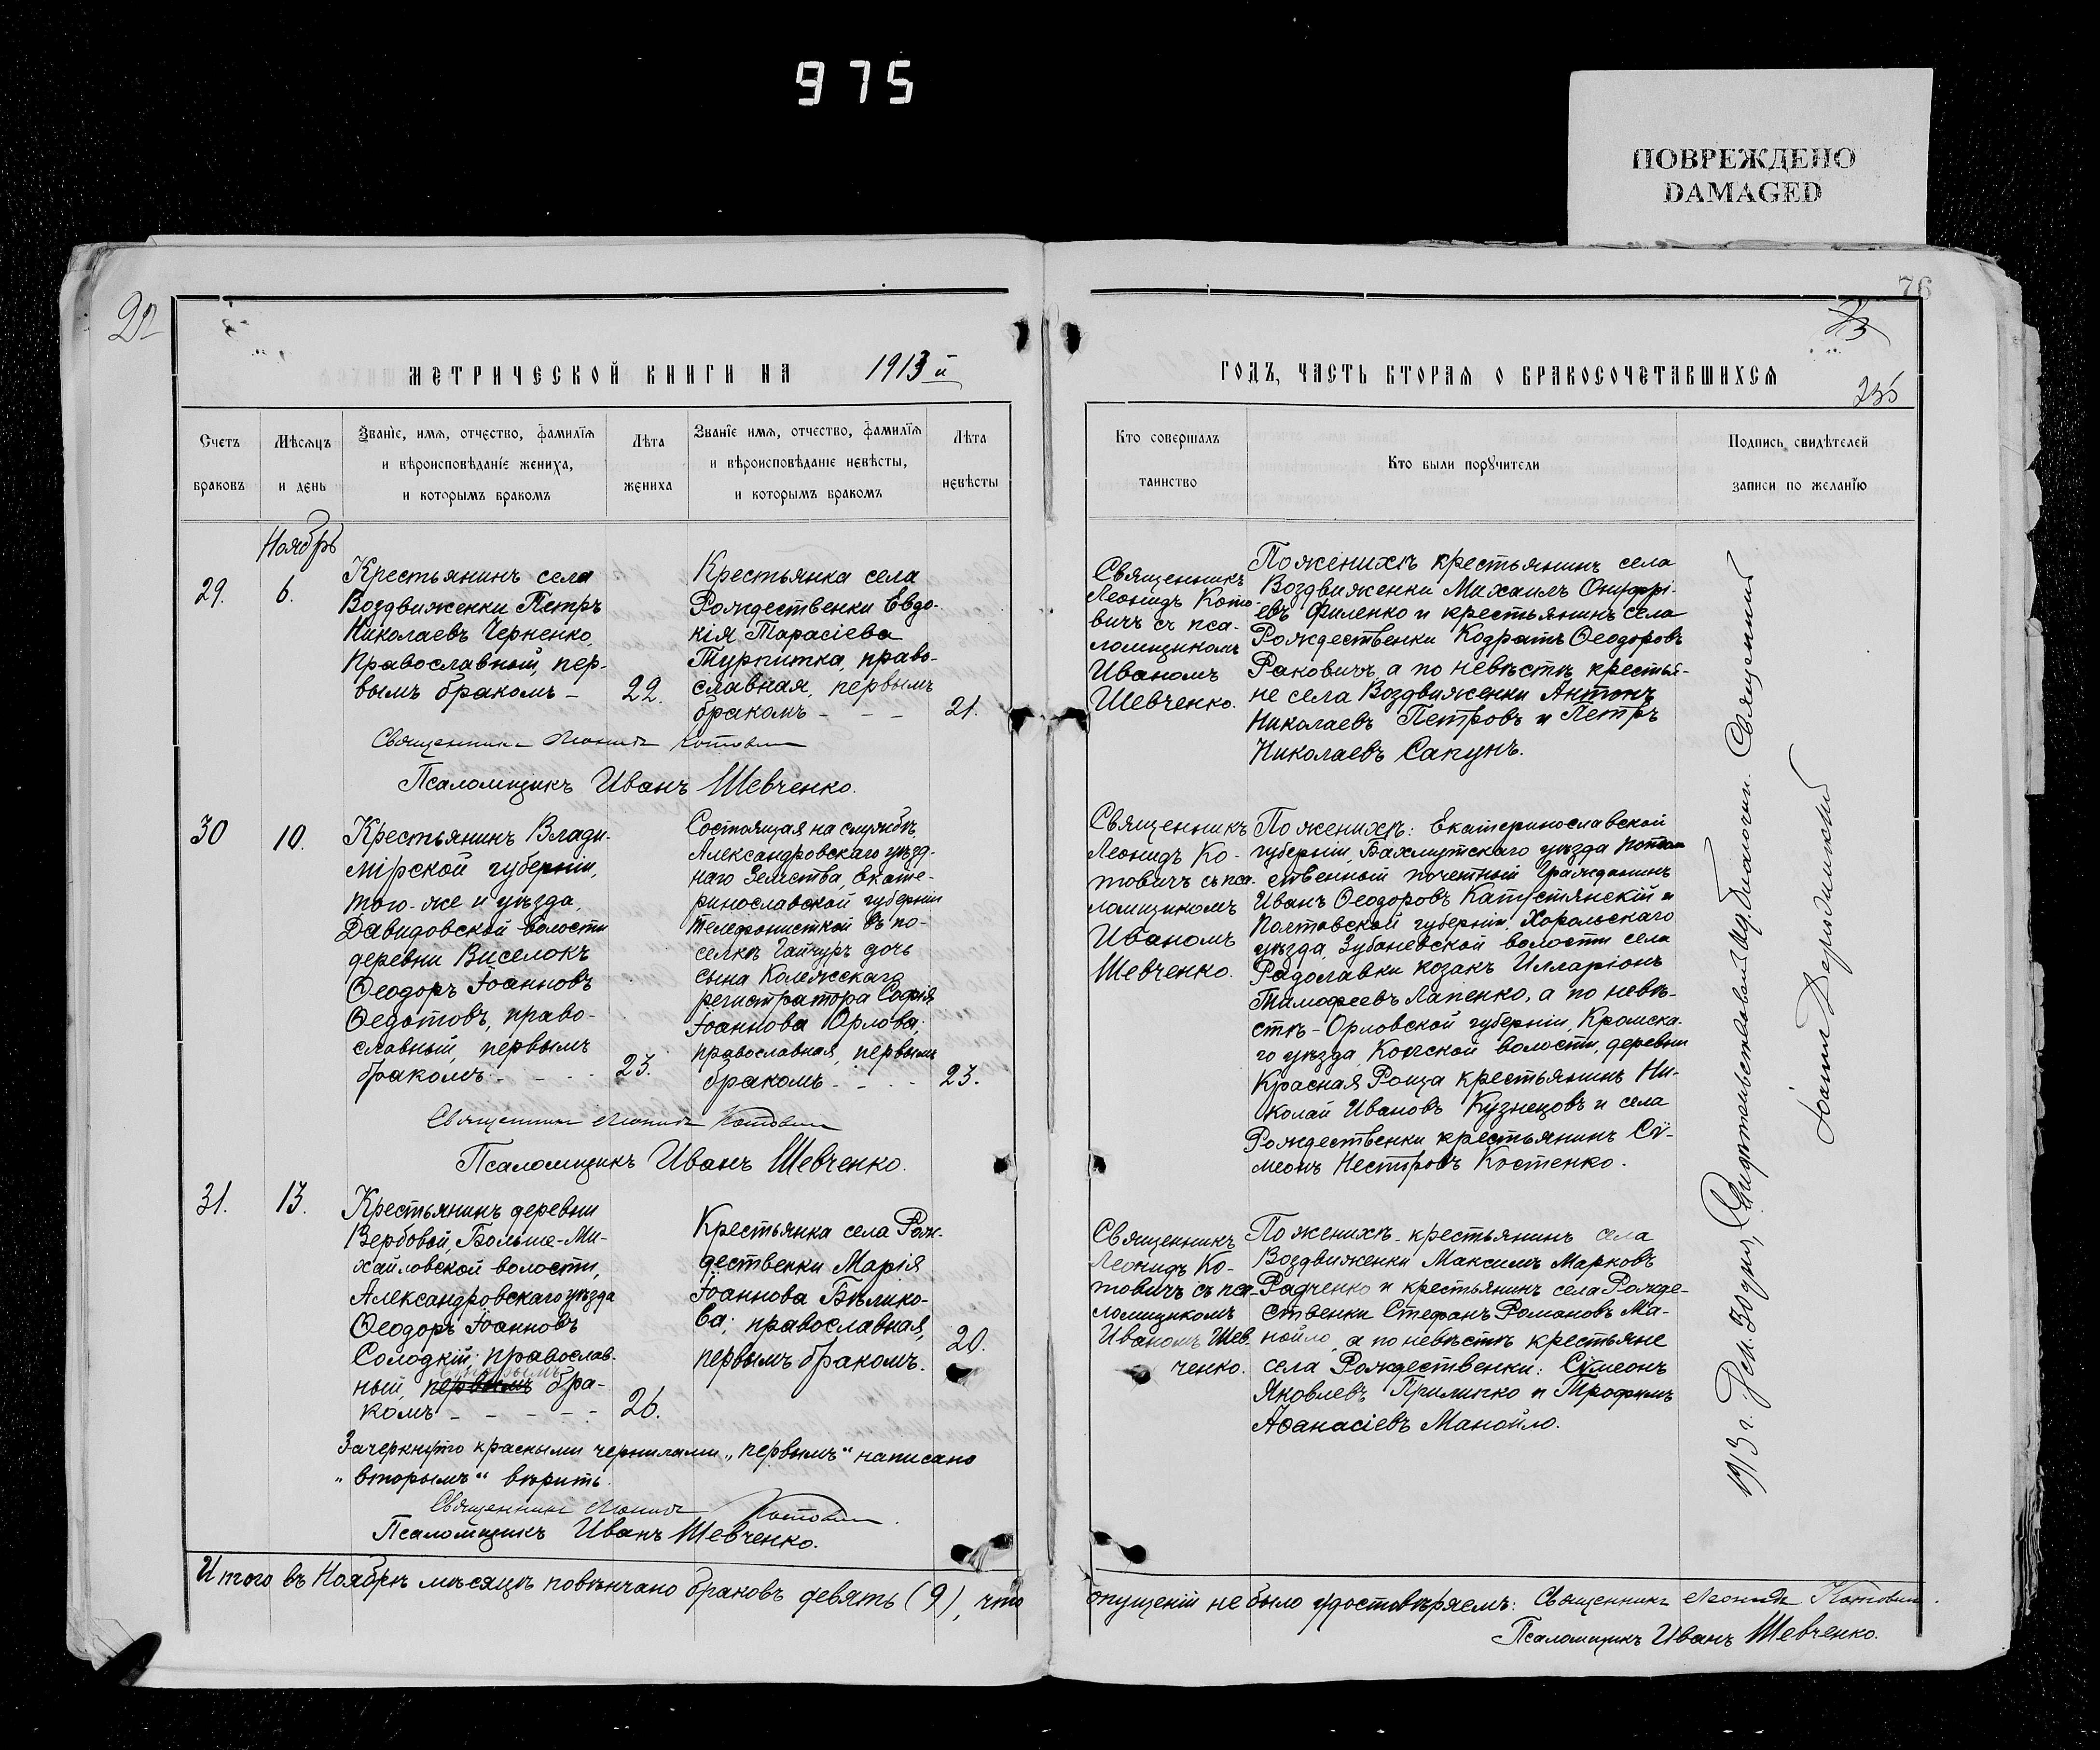 975
ПОВРЕЖДЕНО
DAMAGED
22
76
73
235
МЕТРИЧЕСКОЙ КНИГИ НА 1913й
ГОДЪ, ЧАСТЬ ВТОРАЯ О БРАКОСОЧЕТАВШИХСЯ
Счетъ
браковъ
Мѣсяцъ
и день
Званіе, имя, отчество, фамилія
и вѣроисповѣданіе жениха,
и которымъ бракомъ
Лѣта
жениха
Званіе имя, отчество, фамилія
и вѣроисповѣданіе невѣсты,
и которымъ бракомъ
Лѣта
невѣсты
Кто совершалъ
таинство
Кто были поручители
Подпись свидѣтелей
записи по желанію
Ноябрь
29.
6.
Крестьянинъ села
Воздвиженки Петръ
Николаевъ Черненко,
православный, пер-
вымъ бракомъ –
22.
Крестьянка села
Рождественки Евдо-
кія Тарасіева
Турпитка, право-
славная, первымъ
бракомъ - - –
21.
Священникъ
Леонидъ Кото-
вичъ съ пса-
ломщикомъ
Иваномъ
Шевченко.
По женихѣ крестьянинъ села
Воздвиженки Михаилъ Онуфрі-
евъ Филенко и крестьянинъ села
Рождественки Кодратъ Ѳеодоровъ
Раковичъ, а по невѣстѣ крестья-
не села Воздвиженки Антонъ
Николаевъ Петровъ и Петръ
Николаевъ Сапунъ.
Священникъ Леонидъ Котовичъ
Псаломщикъ Иванъ Шевченко.
30
10.
Крестьянинъ Влади-
мірской губерніи,
того-же и уѣзда,
Давидовской волости
деревни Виселокъ
Ѳеодоръ Іоанновъ
Ѳедотовъ, право-
славный, первымъ
бракомъ - - - -
23.
Состоящая на службѣ
Александровскаго уѣзд-
наго Земства, Екате-
ринославской губерніи
телефонисткой въ по-
селкѣ Гайчуръ дочь
сына Коллежскаго
регистратора Софія
Іоаннова Орлова,
православная, первымъ
бракомъ - - -
23.
Священникъ
Леонидъ Ко-
товичъ съ пса-
ломщикомъ
Иваномъ
Шевченко.
По женихѣ: Екатеринославской
губерніи, Бахмутскаго уѣзда потом
ственный почетный Гражданинъ
Иванъ Ѳеодоровъ Капустянскій и
Полтавской губерніи, Хорольскаго
уѣзда, Зубаневской волости села
Радолавки козакъ Илларіонъ
Тимофеевъ Лапенко, а по невѣ-
стѣ – Орловской губерніи, Кромска-
го уѣзда, волости, деревни
Красная Роща крестьянинъ Ни-
колай Ивановъ Кузнецовъ и села
Рождественки крестьянинъ Сѵ-
меонъ Несторовъ Костенко.
Священникъ Леонидъ Котовичъ
Псаломщикъ Иванъ Шевченко.
31.
13.
Крестьянинъ деревни
Вербовой, Больше-Ми-
хайловской волости,
Александровскаго уѣзда
Ѳеодоръ Іоанновъ
Солодкій; православ-
вторымъ
ный, первымъ бра-
комъ - - - - -
26.
Крестьянка села Рож-
дественки Марія
Іоаннова Бѣлико-
ва; православная,
первымъ бракомъ.
20.
Священникъ
Леонидъ Ко-
товичъ съ пса-
ломщикомъ
Иваномъ Шев-
ченко.
По женихѣ - крестьянинъ села
Воздвиженки Максимъ Марковъ
Радченко и крестьянинъ села Рожде-
ственки Стефанъ Романовъ Ма-
нойло, а по невѣстѣ крестьяне
села Рождественки: Сѵмеонъ
Яковлевъ Прилипко и Трофимъ
Аѳанасіевъ Манойло.
Зачеркнуто красными чернилами „первымъ“ написано
„вторымъ“ вѣрить.
Священникъ Леонидъ Котовичъ.
Псаломщикъ Иванъ Шевченко.
Итого въ Ноябрѣ мѣсяцѣ повѣнчано браковъ девять (9), что
опущеній не было удостовѣряемъ: Священникъ Леонидъ Котовичъ.
Псаломщикъ Иванъ Шевченко.
1913 г. 30 дня, Свидѣтельствовалъ Благочин. Священникъ
Іоаннъ